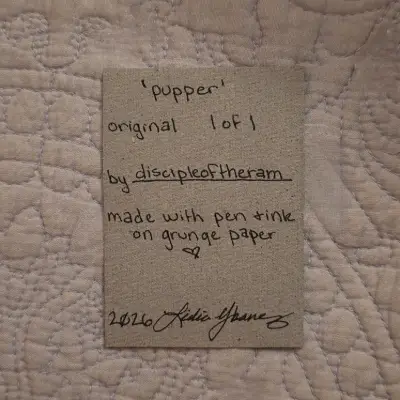 'pupper'
original 1 of 1
by discipleoftheram
made with pen + ink
on grunge paper
♡
2026 Lidia Ybanez